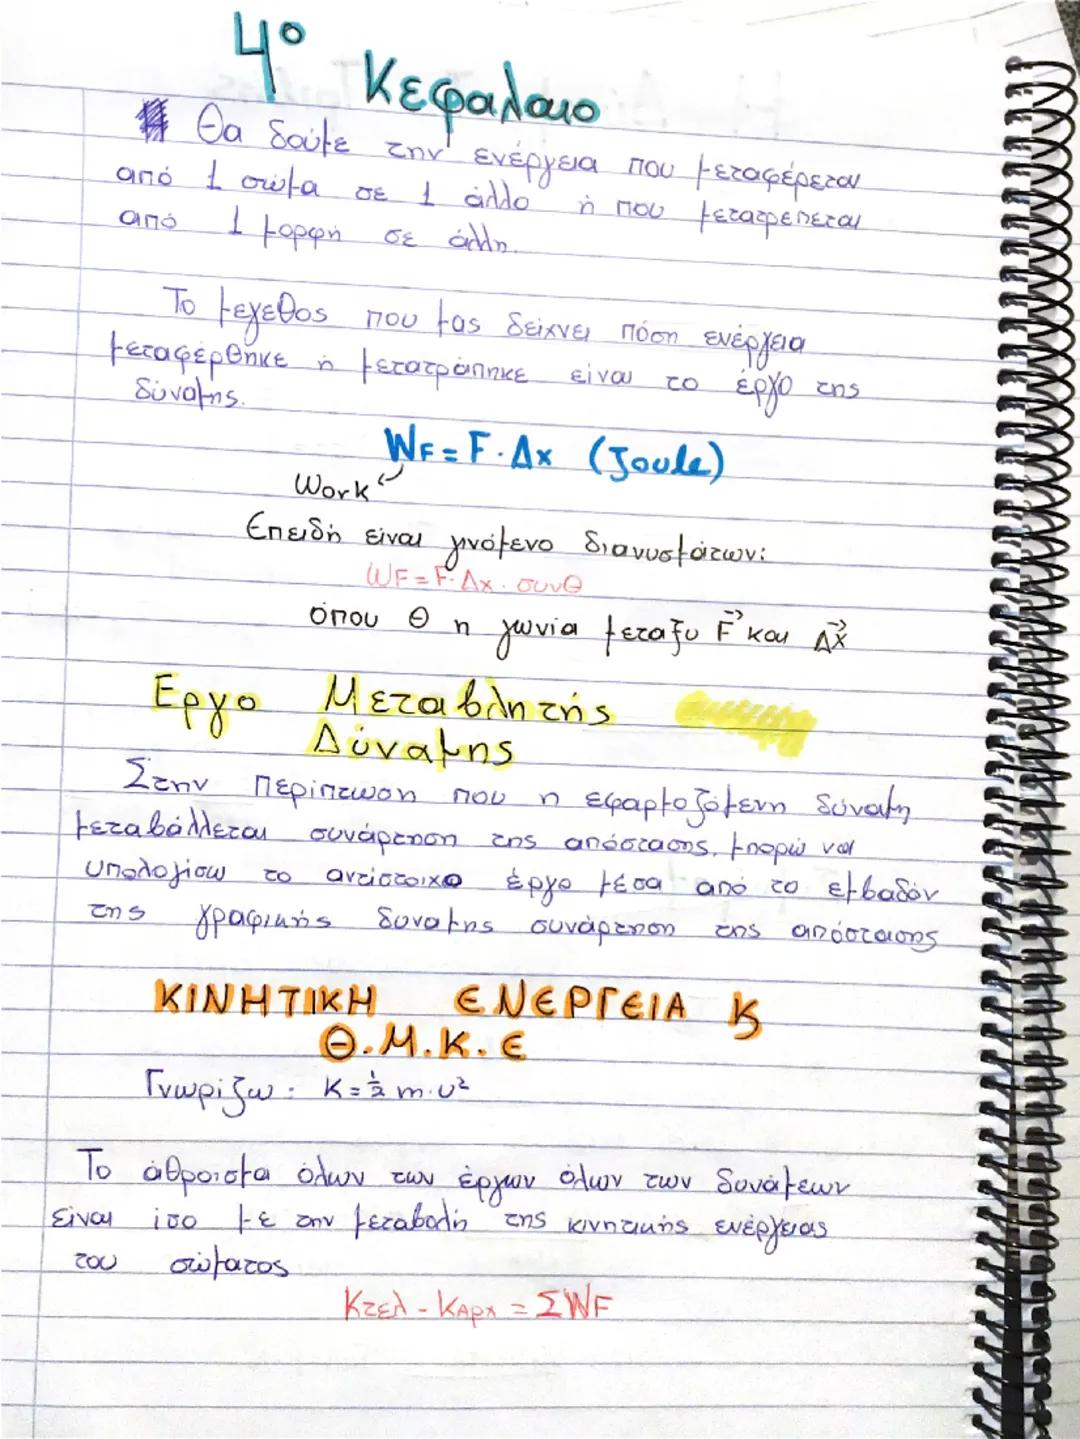 4º Κεφαλαιο
Θα δούμε την ενέργεια που μεταφέρεται
από 1 σώμα σε 1 άλλο ή που μετατρέπεται
από 1 μορφή σε άλλη.
Το μεγεθος που μας δείχνει πόση ενέργεια
μεταφέρθηκε ή μετατράπηκε είναι το έργο της
δύναμης.
WF = F · Δx (Joule)
Work
Επειδή είναι γινόμενο διανυσμάτων:
WF = F · Δx · συνθ
όπου θ η γωνία μεταξυ F⃗ και Δx⃗
Εργο Μεταβλητής
Δύναμης
Στην περίπτωση που η εφαρμοζόμενη δύναμη
μεταβάλλεται συνάρτηση της απόστασης, μπορώ να
υπολογίσω το αντίστοιχο έργο μέσα από το εμβαδόν
της γραφικής δυναμης συνάρτηση της απόστασης
ΚΙΝΗΤΙΚΗ ΕΝΕΡΓΕΙΑ ϗ
Θ.Μ.Κ.Ε
Γνωρίζω: K = ½ m · υ²
Το άθροισμα όλων των έργων όλων των δυνάμεων
είναι ίσο με την μεταβολή της κινητικής ενέργειας
του σώματος
Kτελ - KΑρχ = ΣWF